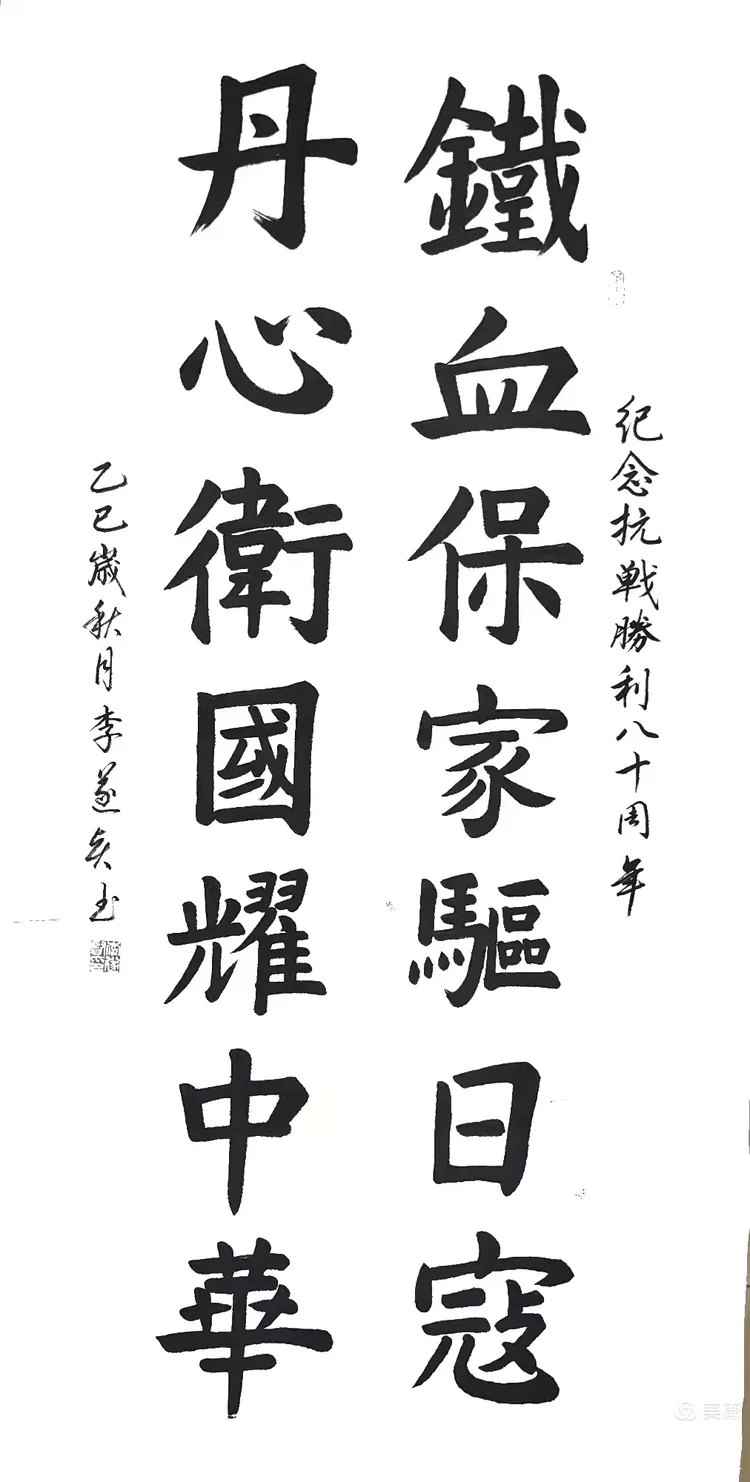 紀念抗戰勝利八十周年
鐵血保家驅日寇
丹心衛國耀中華
乙巳歲秋月李遂
美篇